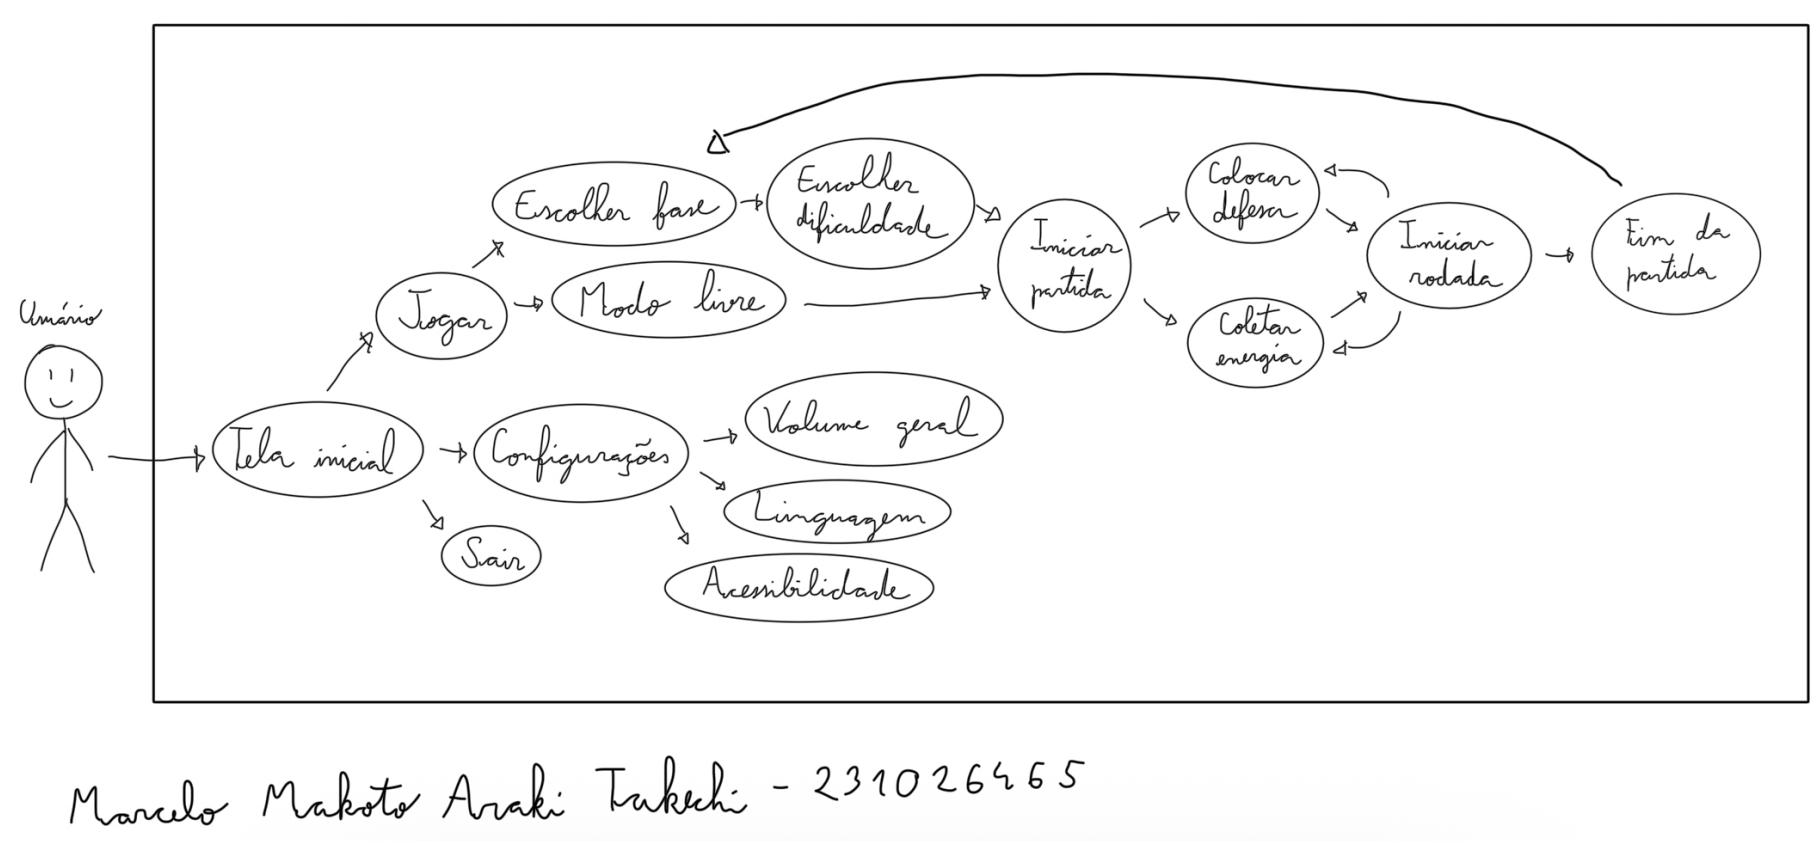 Usuário
Escolher fase
Escolher
dificuldade
Jogar
Modo livre
Iniciar
partida
Colocar
defesa
Coletar
energia
Iniciar
rodada
Fim da
partida
Tela inicial
Configurações
Sair
Volume geral
Linguagem
Acessibilidade
Marcelo Makoto Araki Takechi - 231026465